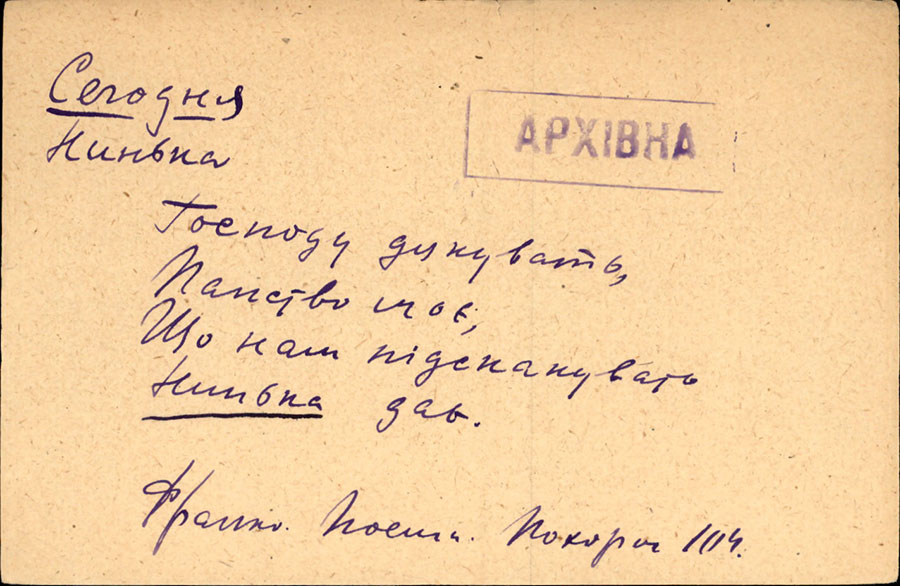 Сегодня
АРХІВНА
Нинька
Господу дякувать,
Панство моє,
Що нам підсканувать
Нинька дав.
Франко. Поеми. Похорон 114.